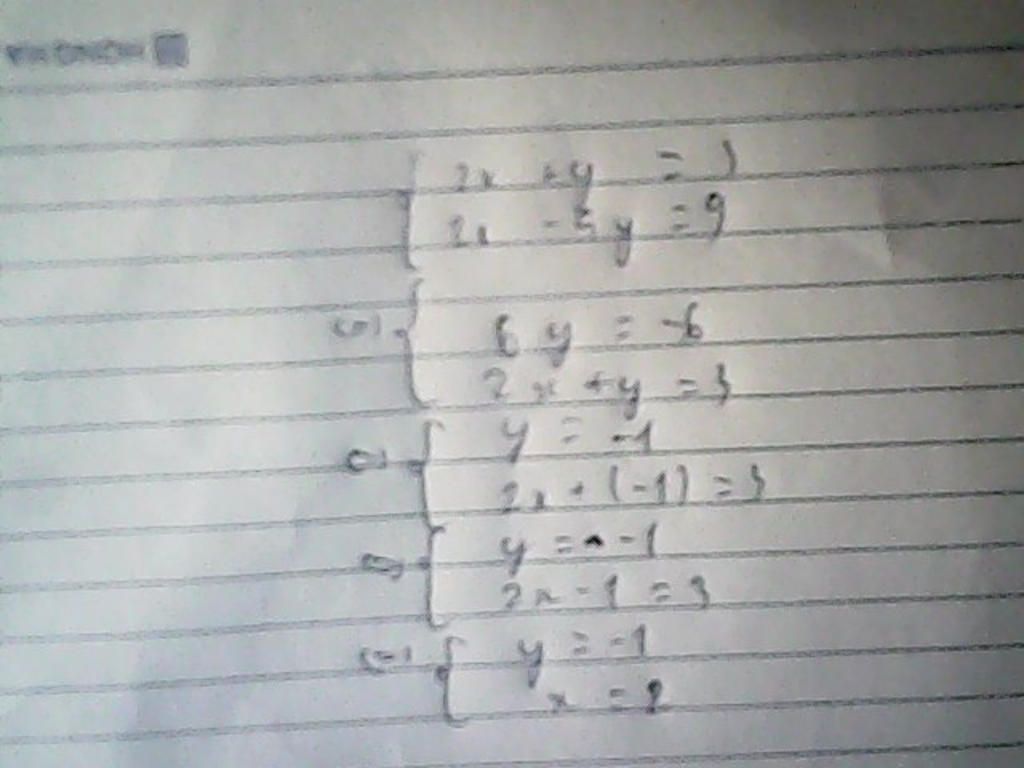 2x + y = 3
2x - 5y = 9
(=) 6y = -6
2x + y = 3
(=) y = -1
2x + (-1) = 3
(=) y = -1
2x - 1 = 3
(=) y = -1
x = 2